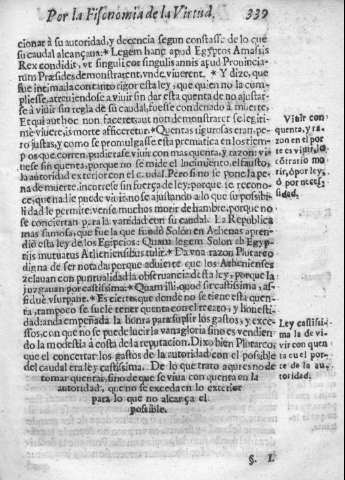 Por la Fisonomia de la Virtud. 339
cionar à su autoridad, y decencia segun constasse de lo que
su caudal alcançaua: * Legem hanc apud Egyptos Amasis
Rex condidit, vt singuli eor singulis annis apud Prouincia-
rum Præsides demonstrarent, vnde viuerent. * Y dize, que
fue intimada con tanto rigor esta ley, que quien no la com-
pliesse, atreuiendose a viuir sin dar esta quenta de no ajustar-
se à viuir sin regla de su caudal, fuesse condenado à muerte,
Et qui ad hoc non faceret, aut non demonstraret se legiti-
mè viuere, is morte afficeretur. * Quentas rigurosas eran, pe-
ro justas, y como se promulgasse esta prematica en los tiem-
pos que corren, pudierase viuir con mas quenta, y razon: vi-
uese sin quenta, porque no se mide el lucimiento, el fausto,
la autoridad exterior con el caudal. Pero si no se pone la pe-
na de muerte, incorrese sin fuerça de ley, porque se recono-
ce, que nadie puede viuir no se ajustando a lo que su possibi-
lidad le permite: vense muchos morir de hambre, porque no
se conciertan para la vanidad con su caudal. La Republica
mas famosa, que fue la que fundò Solòn en Athenas apren-
diò esta ley de los Egipcios: Quam legem Solon ab Egyp-
tijs mutuatus Atheniensibus tulit. * Da vna razon Plutarco
digna de ser notada: porque aduierte que los Athenienses
zelauan con puntualidad la obseruancia desta ley, porque la
juzgauan por castissima: * Quam illi, quod sit castissima, as-
siduè vsurpant. * Es cierto, que donde no se tiene esta quen-
ta, tampoco se suele tener quenta con el recato, y honesti-
dad: anda empeñada la honra para suplir los gastos, y exce-
ssos, con que no se puede lucir la vanagloria sino es vendien-
do la modestia à costa de la reputacion. Dixo bien Plutarco,
que el concertar los gastos de la autoridad con el possible
del caudal era ley castissima. De lo que trato aqui es no de
tomar quentas, sino de que se viua con quenta en la
autoridad, que no se exceda en lo exterior
para lo que no alcança el
possible.
Viuir con
quenta, y ra-
zon en el por
te es viuir, lo
cõtrario mo-
rir, ò por ley,
ò por necess-
sidad.
Ley castissi-
ma la de vi-
vir con quen
ta en el por-
te de la au-
toridad.
§. I.